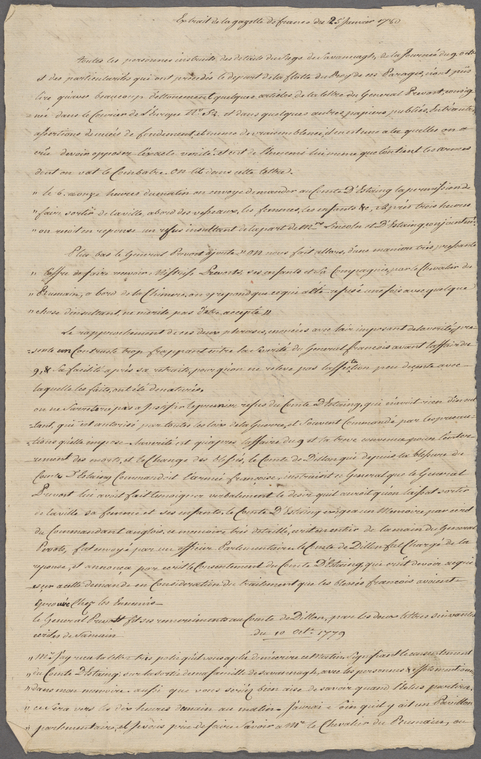 Extrait de la gazette de france du 25 Janvier 1780
toutes les personnes instruites des détails du siege de Savannagh, de la Journée du 9. 8bre
et des particularités qui ont précédé le depart de la flotte du Roy de ces Parages, n'ont pu
lire qu'avec beaucoup d'étonnement quelques articles de la lettre du General Prevost,
dans le Courier de l'Europe N.º et dans quelques autres papiers publics,
assertions denuées de fondement, et meme de vraisemblance, aux quelles on
devoir opposer l'exacte verité, et c'est de l'ennemi lui meme que l'on tient les armes
dont on vat le Combattre. On lit dans cette lettre.
" le 6. a onze heures du matin on envoye demander au Comte D'Estaing la permission de
" faire sortir de la ville, a bord des vaisseaux, les femmes, les enfants &c. Après trois heures
" on reçut en reponse un refus insultant de la part de Mrs. Lincoln et D'Estaing conjointement
Plus bas le General Prevost ajoute. " On nous fait alors, d'une manière très pressante
" l'offre de faire recevoir Mistriss Prevost, ses enfants et sa Compagnie, par le Chevalier du
" Rumain, a bord de la Chimere, on y repondit que ce qui a été refusé une fois avec quelque
" chose d'insultant ne merite pas d'être accepté "
Le rapprochement de ces deux phrases, enoncées avec l'air imposant de la verité,
presente un Contraste trop frappant entre la du General françois avant l'affaire du
9, & sa facilité après sa retraite, pour qu'on ne releve pas l'affectation peu decente avec
laquelle les faits, ont été denaturés.
on ne s'arretera pas a Justifier le premier refus du Comte D'Estaing, qui n'avoit rien d'insul
tant, qui est autorisé par toutes les loix de la Guerre, et souvent Commandé par la
la verité est qu'après l'affaire du 9 et la treve convenue pour l'enter
rement des morts, et l'echange des blessés, le Comte de Dillon, qui depuis la blessure du
Comte D'Estaing Commandoit l'armée françoise, instruisit ce General que le General
Prevost lui avoit fait temoigner verbalement le desir qu'il auroit qu'on laissat sortir
de la ville sa femme et ses enfants. le Comte D'Estaing exigea un Memoire par ecrit
du Commandant anglois, ce memoire très detaillé, ecrit en entier de la main du General
Prevost, fut envoyé par un officier Parlementaire. le Comte de Dillon fut Chargé de la
reponse, et annonça par ecrit le Consentement du Comte D'Estaing, qui crut devoir acquies
cer a cette demande en Consideration du traitement que les blessés françois avoient
éprouvé Chez les Ennemis
le General Prevost fit ses remerciments au Comte de Dillon, par les deux lettres suivantes
ecrites de sa main
du 10 Octre. 1779
" Mr. J'ay reçu la lettre très polie qu'il vous a plu de m'ecrire et le consentement
" du Comte D'Estaing, sur la sortie de ma famille de Savannagh, avec les personnes & effets
" dans mon memoire. aussi que vous seriez bien aise de savoir quand Elles partiront,
" ce sera vers les dix heures demain au matin. J'aurai soin qu'il y ait un Pavillon
" parlementaire, et Je vous prie de faire savoir à Mr. le Chevalier du Rumain, ou